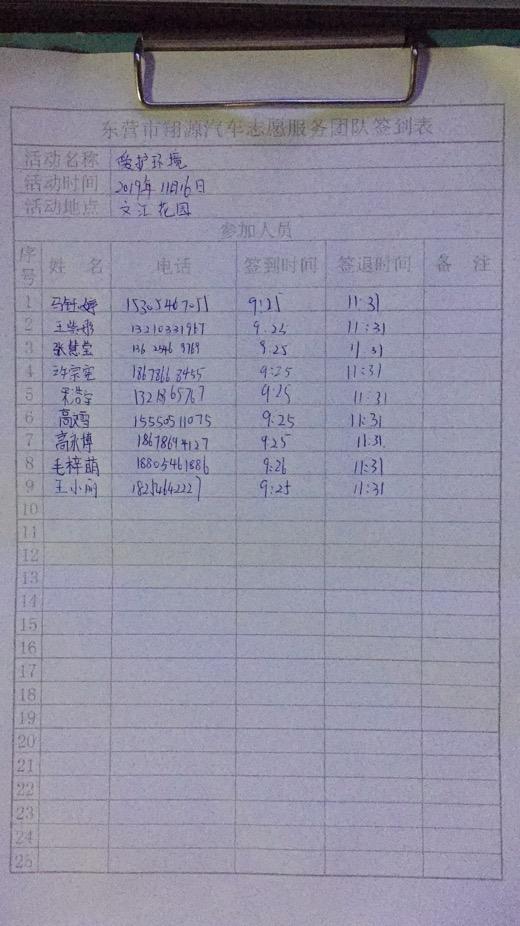 东营市翔源汽车志愿服务团队签到表
活动名称 爱护环境
活动时间 2019年11月16日
活动地点 文汇花园
参加人员
序号 姓 名 电话 签到时间 签退时间 备 注
1 马 婷 15305467051 9:25 11:31
2 王 13210331967 9.25 11:31
3 张慧莹 136 2546 9769 9.25 11.31
4 许宗宪 1867866 8455 9:25 11:31
5 宋浩宇 9:25 11:31
6 高 雪 15550511075 9:25 11:31
7 高永博 18678694127 9.25 11:31
8 毛梓萌 18805461886 9:26 11:31
9 王小丽 18254642227 9:25 11:31
10
11
12
13
14
15
16
17
18
19
20
21
22
23
24
25